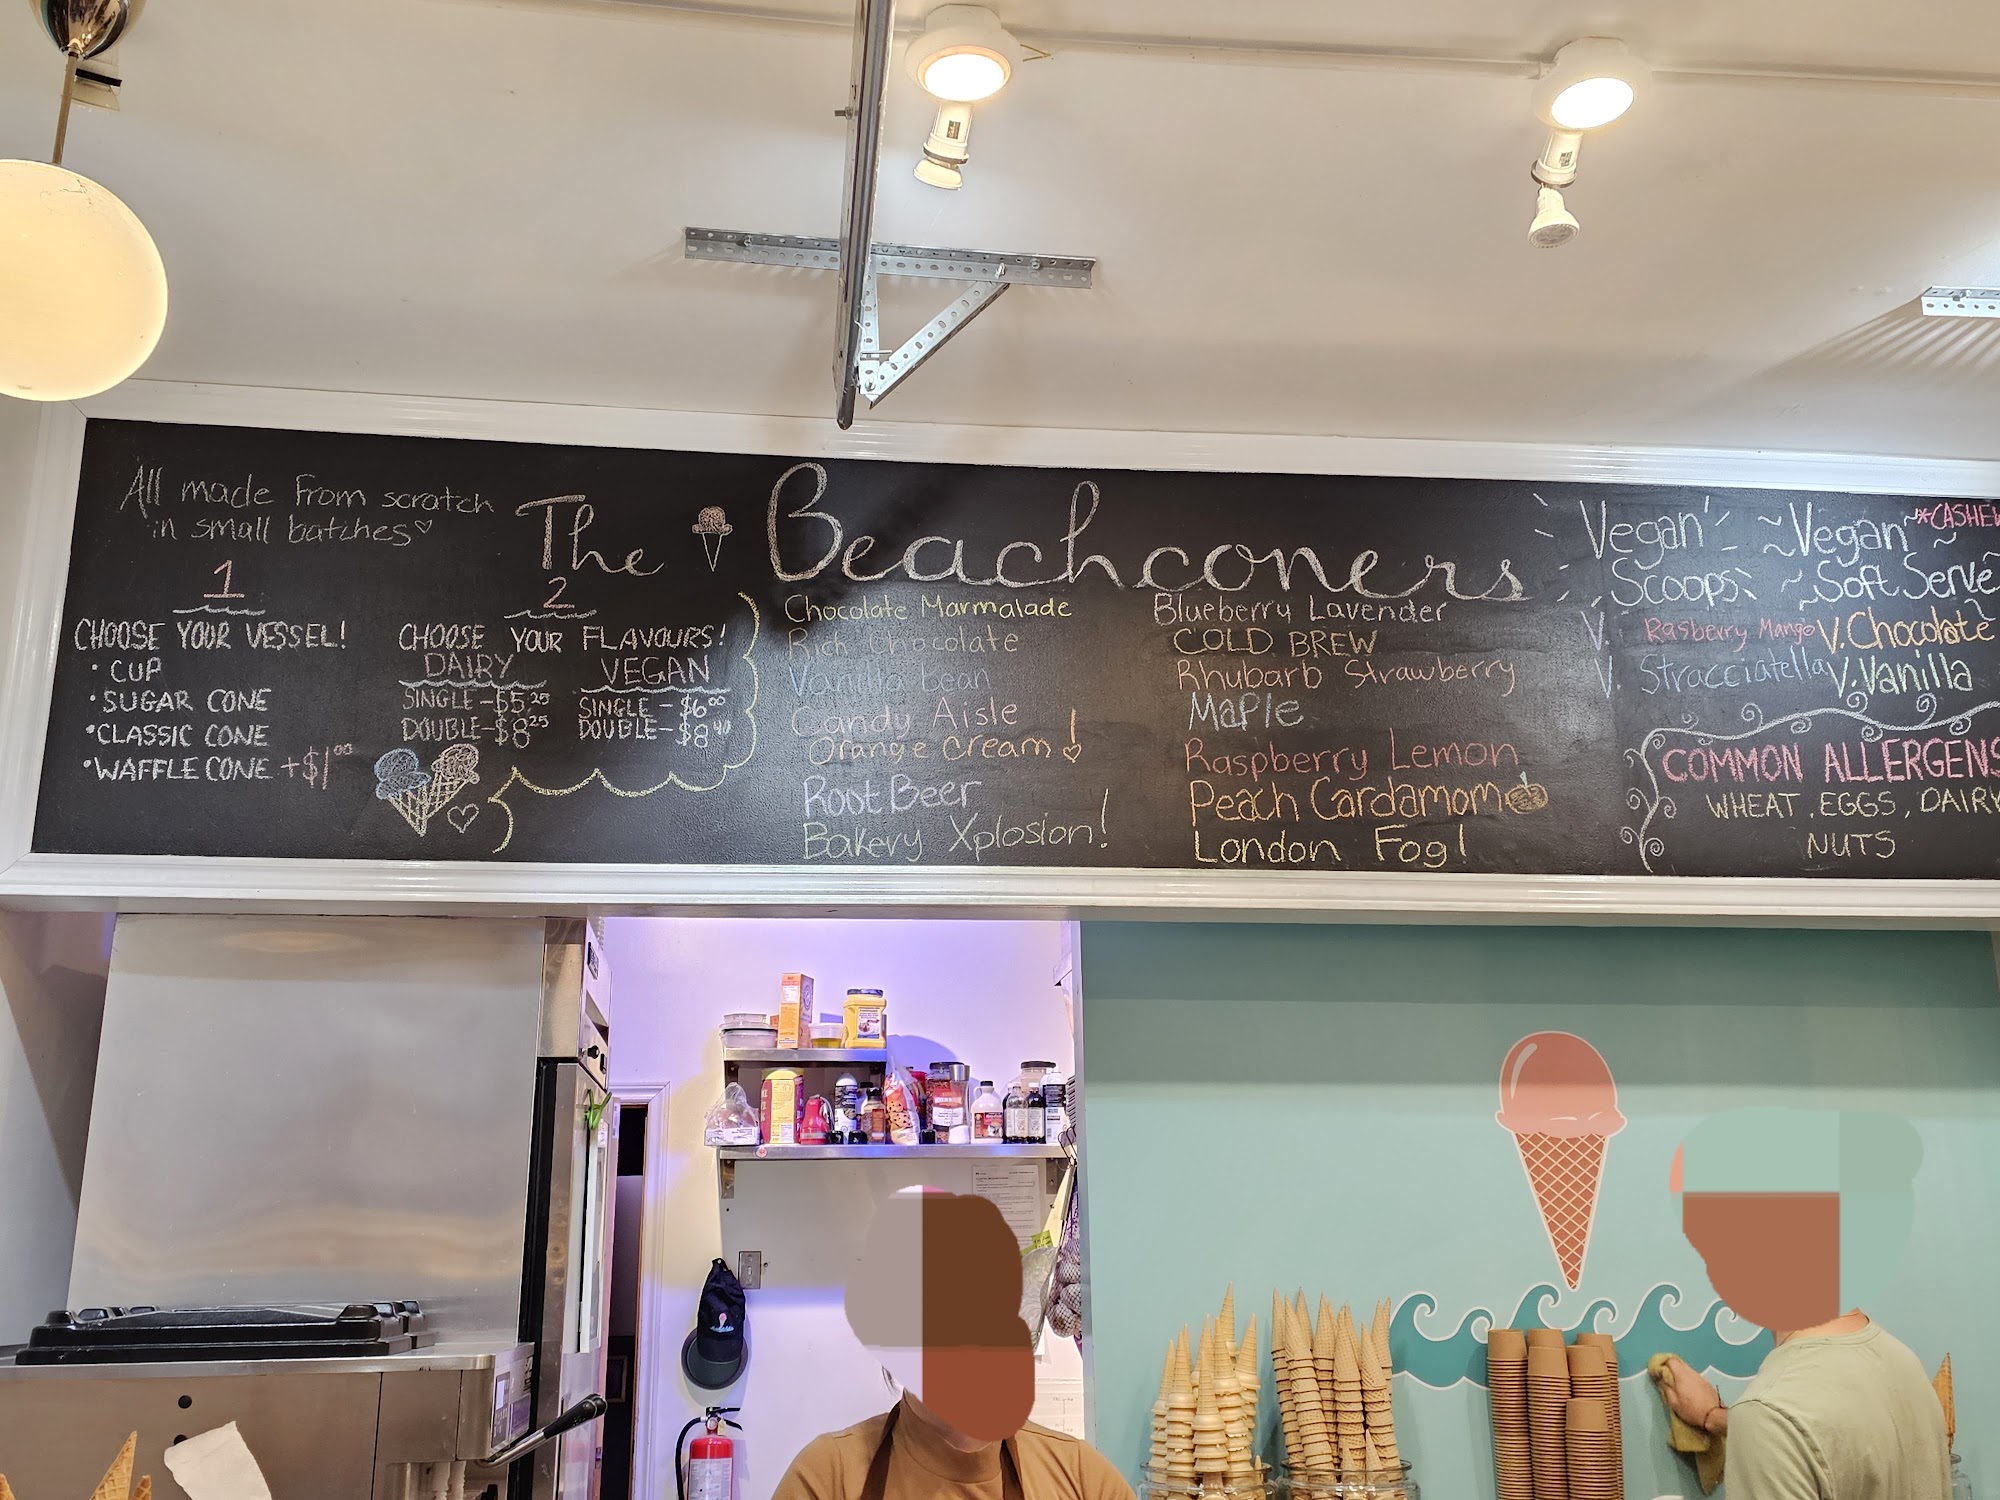 All made from scratch
in small batches
The Beachconers
1
CHOOSE YOUR VESSEL!
• CUP
• SUGAR CONE
• CLASSIC CONE
• WAFFLE CONE +$1.00
2
CHOOSE YOUR FLAVOURS!
DAIRY
SINGLE-$5.25
DOUBLE-$8.25
VEGAN
SINGLE-$6.00
DOUBLE-$8.40
Chocolate Marmalade
Rich Chocolate
Vanilla Bean
Candy Aisle
Orange Cream!
Root Beer
Bakery Xplosion!
Blueberry Lavender
COLD BREW
Rhubarb Strawberry
Maple
Raspberry Lemon
Peach Cardamom
London Fog!
Vegan
Scoops
V. Rasberry Mango
V. Stracciatella
~Vegan~ *CASHEW
~Soft Serve~
V. Chocolate
V. Vanilla
COMMON ALLERGENS
WHEAT, EGGS, DAIRY
NUTS